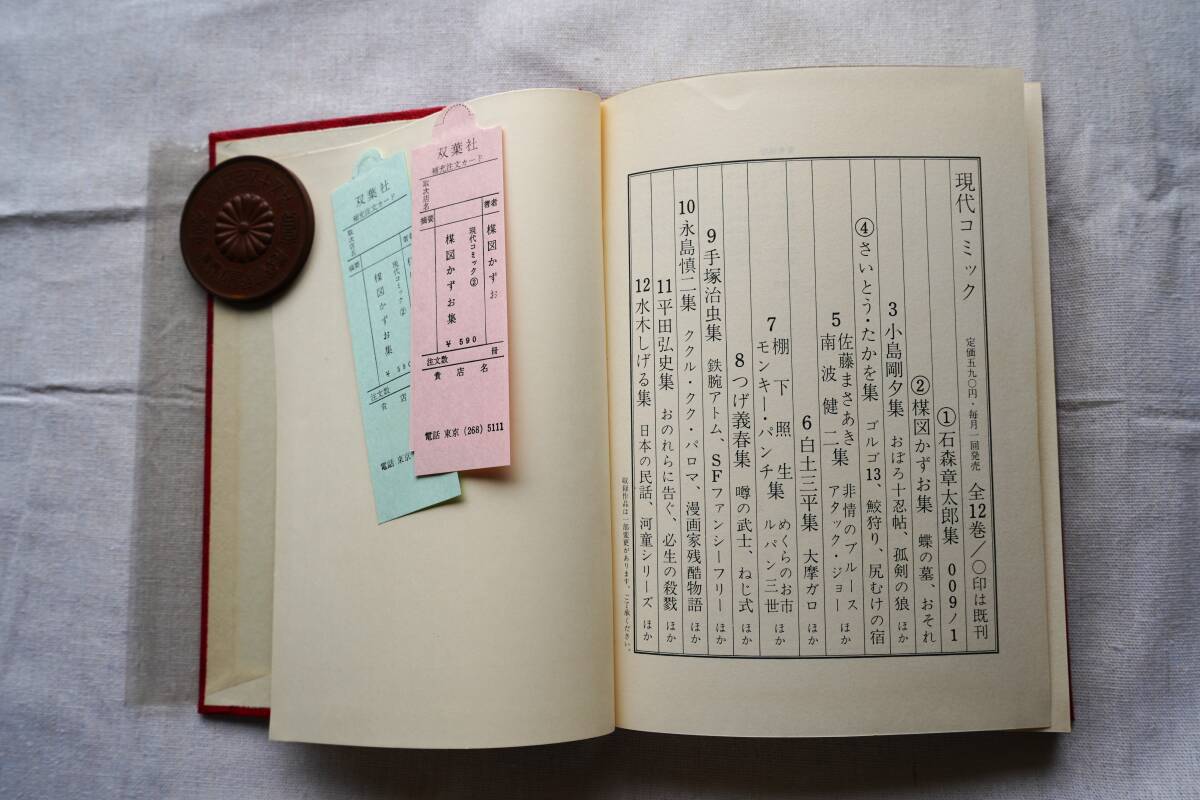 現代コミック 定価五九〇円・毎月一回発売 全12巻／〇印は既刊
①石森章太郎集 009ノ1
②楳図かずお集 蝶の墓、おそれ
3小島剛夕集 おぼろ十忍帖、孤剣の狼 ほか
④さいとう・たかを集 ゴルゴ13、鮫狩り、尻むけの宿
5佐藤まさあき 南波健二集 非情のブルース アタック・ジョー ほか
6白土三平集 大摩ガロ ほか
7棚下照生 モンキー・パンチ集 めくらのお市 ルパン三世 ほか
8つげ義春集 噂の武士、ねじ式 ほか
9手塚治虫集 鉄腕アトム、SFファンシーフリー ほか
10永島慎二集 ククル・クク・パロマ、漫画家残酷物語 ほか
11平田弘史集 おのれらに告ぐ、必生の殺戮 ほか
12水木しげる集 日本の民話、河童シリーズ ほか
収録作品は一部変更があります。ご了承ください。
双葉社
補充注文カード
取次店名
著者
楳図かずお
摘要
現代コミック②
楳図かずお集
￥590
注文数 冊
貴店名
電話 東京 (268) 5111
双葉社
補充注文カード
取次店名
摘要
現代コミック②
楳図かずお集
注文数
貴店
電話 東京